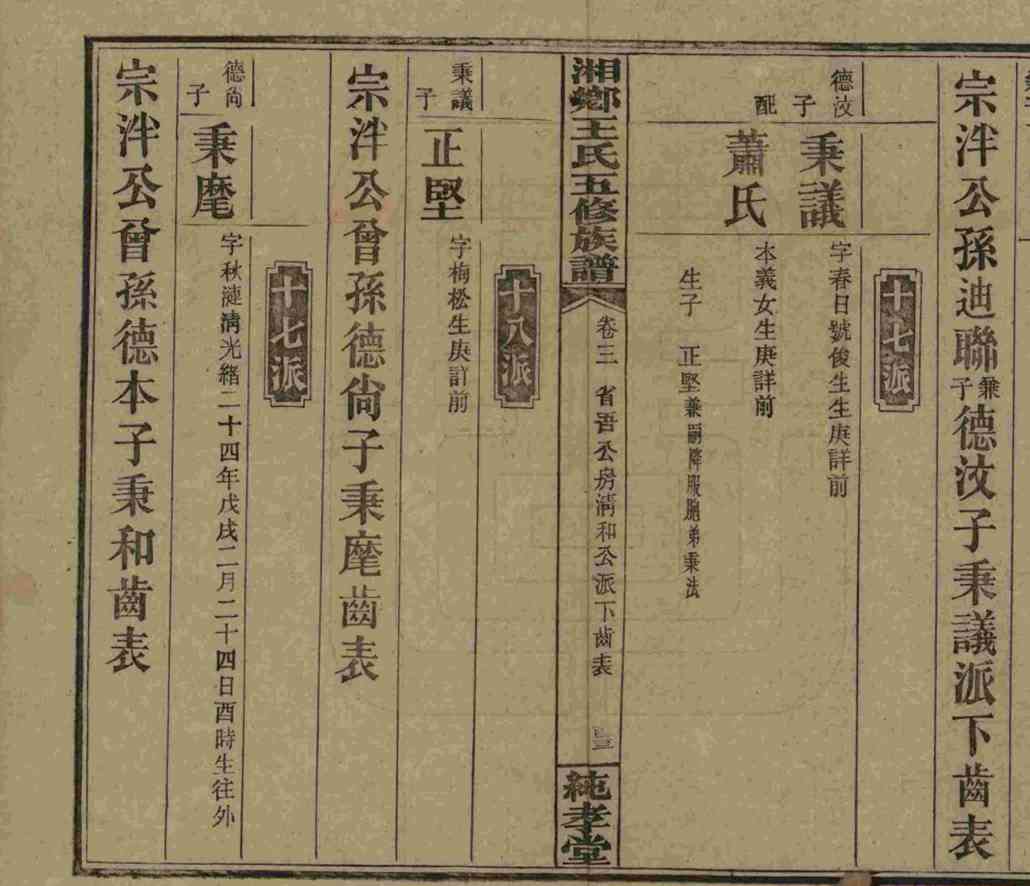 宗泮公孫迪聯兼子德汶子秉議派下齒表
十七派
德汶子
秉議
字春日號俊生生庚詳前
配
蕭氏
本義女生庚詳前
生子 正堅兼嗣降服胞弟秉法
湘鄉王氏五修族譜
卷三 省吾公房清和公派下齒表
純孝堂
十八派
秉議子
正堅
字梅松生庚詳前
宗泮公曾孫德尙子秉麾齒表
十七派
德尙子
秉麾
字秋漣淸光緒二十四年戊戌二月二十四日酉時生往外
宗泮公曾孫德本子秉和齒表